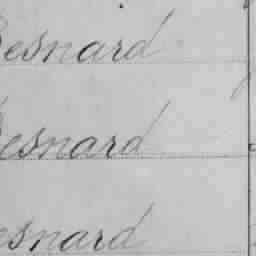 Besnard
Besnard
esnard